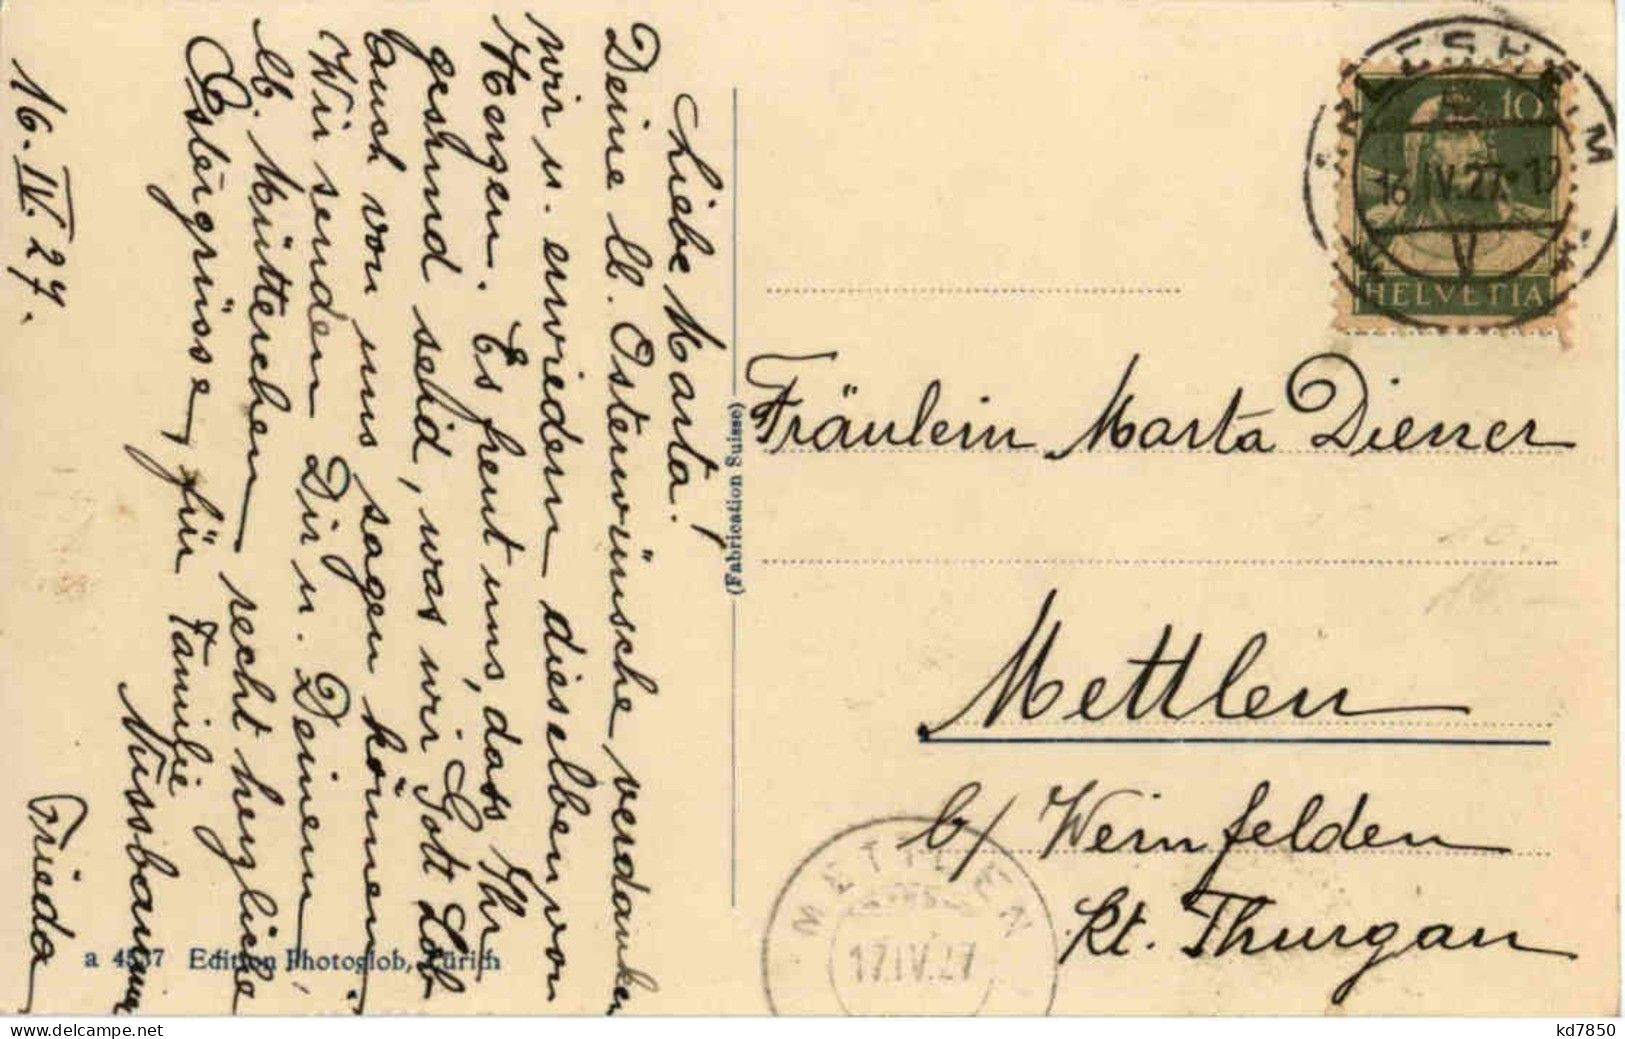 16. IV. 27.
Liebe Marta!
Deine lb. Osterwünsche verdanken
wir u. erwiedern dieselben von
Herzen. Es freut uns, dass Ihr
gesund seid, was wir Gott Lob
auch von uns sagen können.
Wir senden Dir u. Deinem
lb. Mütterchen recht herzliche
Ostergrüsse, für Familie
Nussbaumer
Frieda
a 4537 Edition Photoglob, Zürich
(Fabrication Suisse)
10
HELVETIA
ARLESHEIM
16.IV.27
V
Fräulein Marta Diener
Mettlen
b/ Weinfelden
Kt. Thurgau
METTLEN
17.IV.27
kd7850